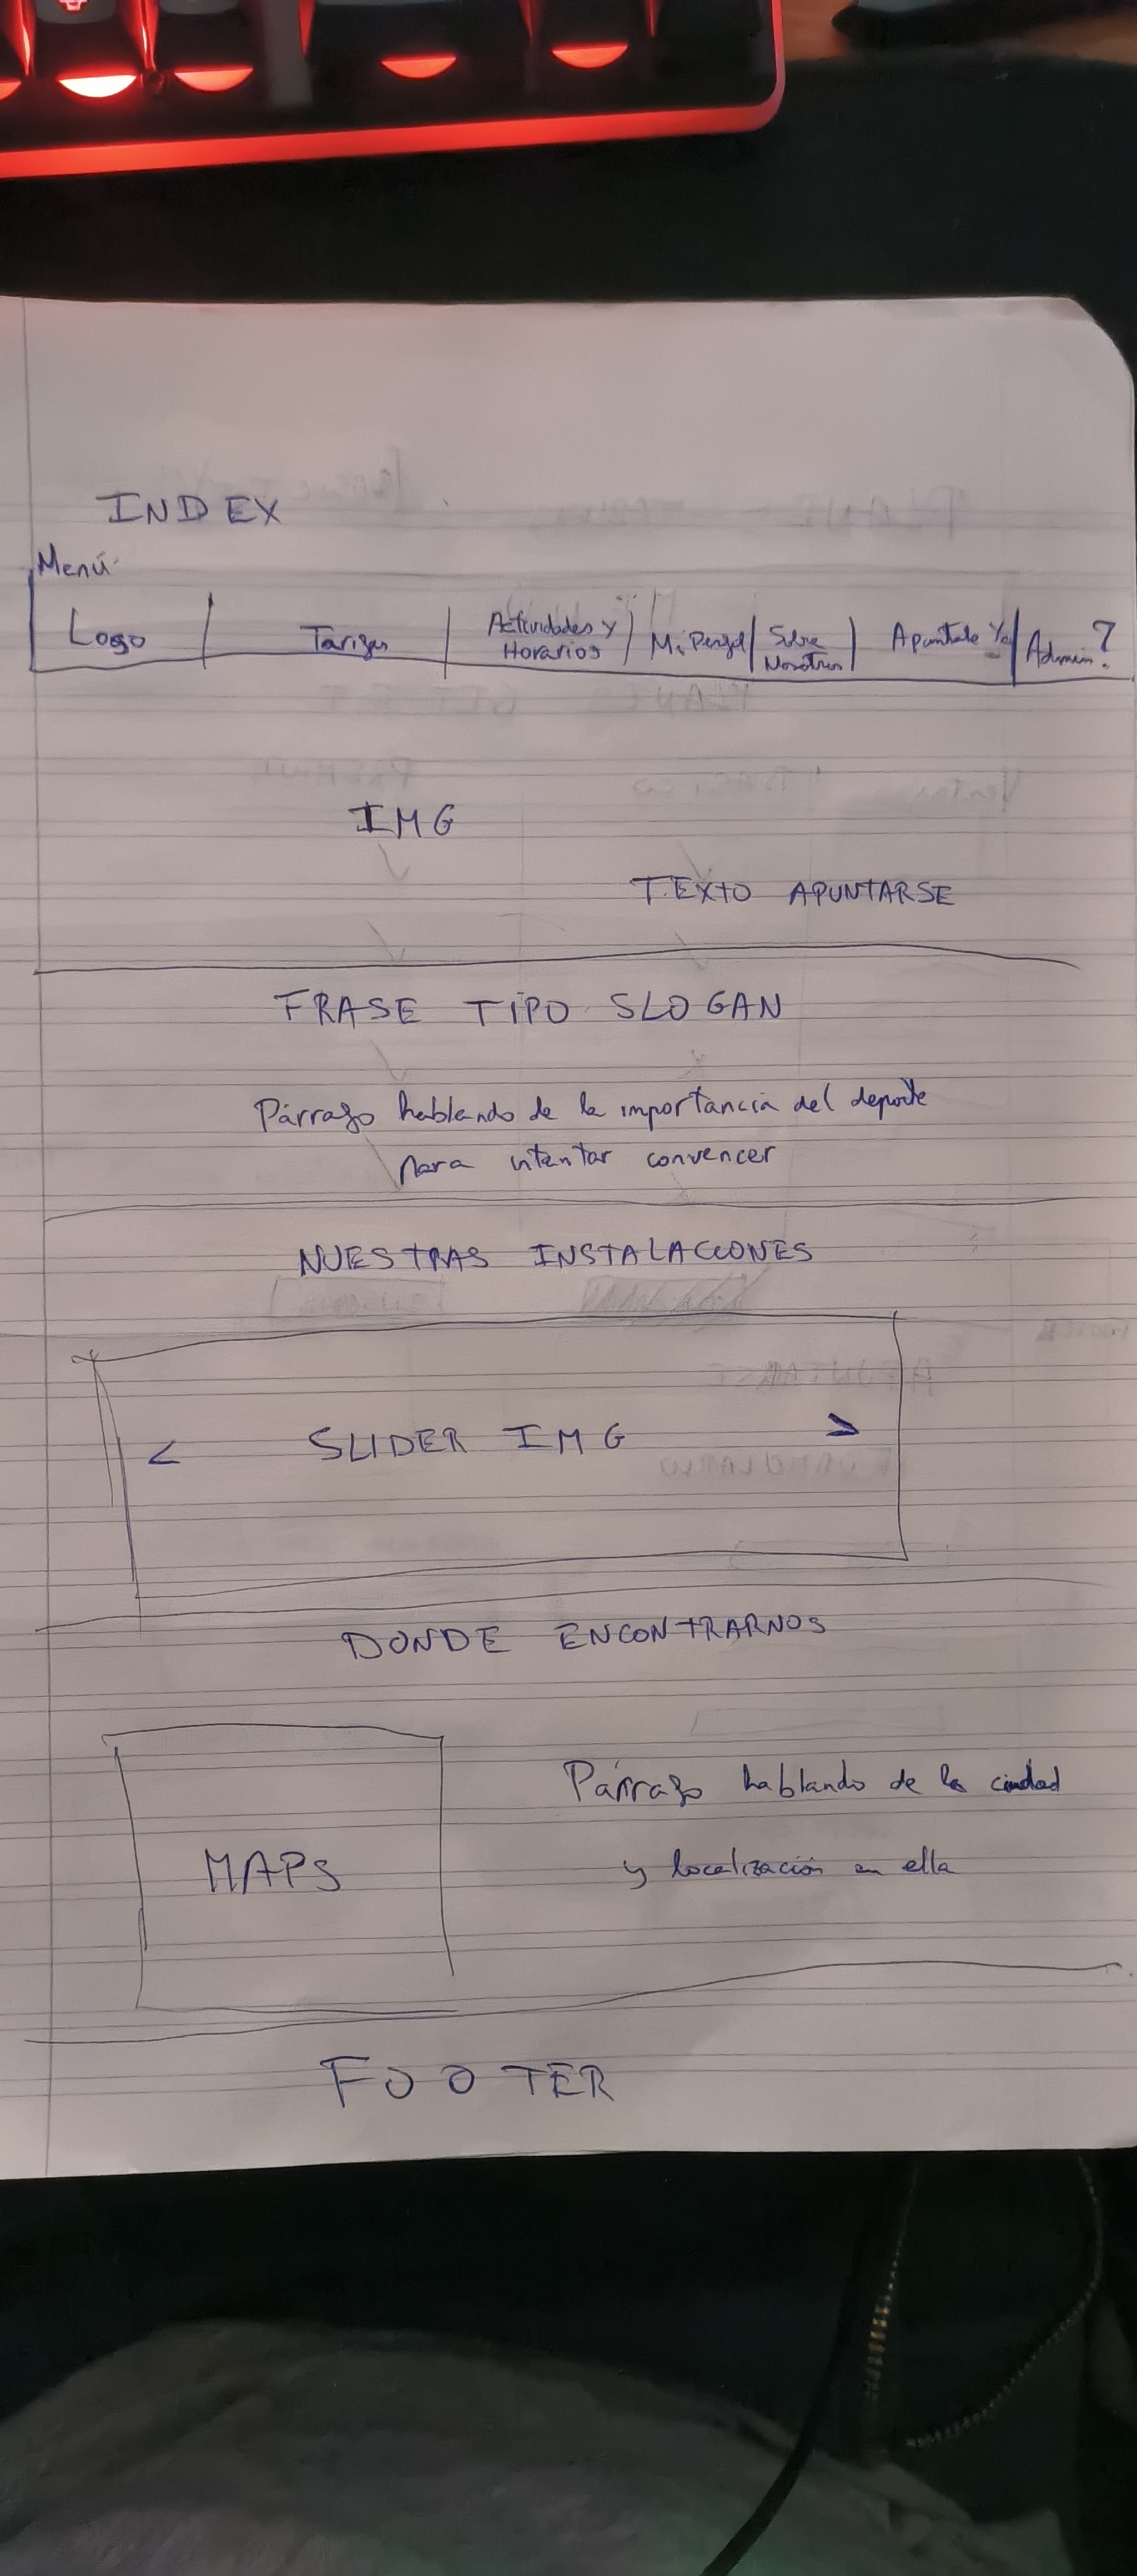 INDEX
Menú
Logo
Tarifas
Actividades y
Horarios
Mi Perfil
Sobre
Nosotros
Apúntate Ya
Admin?
IMG
TEXTO APUNTARSE
FRASE TIPO SLOGAN
Párrafo hablando de la importancia del deporte
para intentar convencer
NUESTRAS INSTALACIONES
< SLIDER IMG >
DONDE ENCONTRARNOS
MAPS
Párrafo hablando de la ciudad
y localización en ella
FOOTER